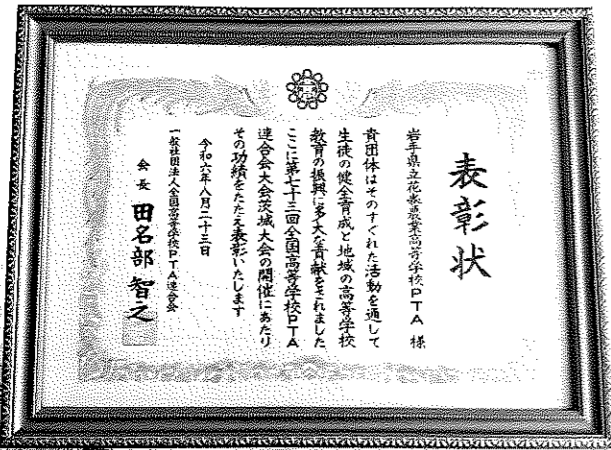 表彰状
岩手県立花巻農業高等学校PTA 様
貴団体はそのすぐれた活動を通して
生徒の健全育成と地域の高等学校
教育の振興に多大な貢献をされました
ここに第七十三回全国高等学校PTA
連合会大会茨城大会の開催にあたり
その功績をたたえ表彰いたします
令和六年八月二十三日
一般社団法人全国高等学校PTA連合会
会長 田名部 智之